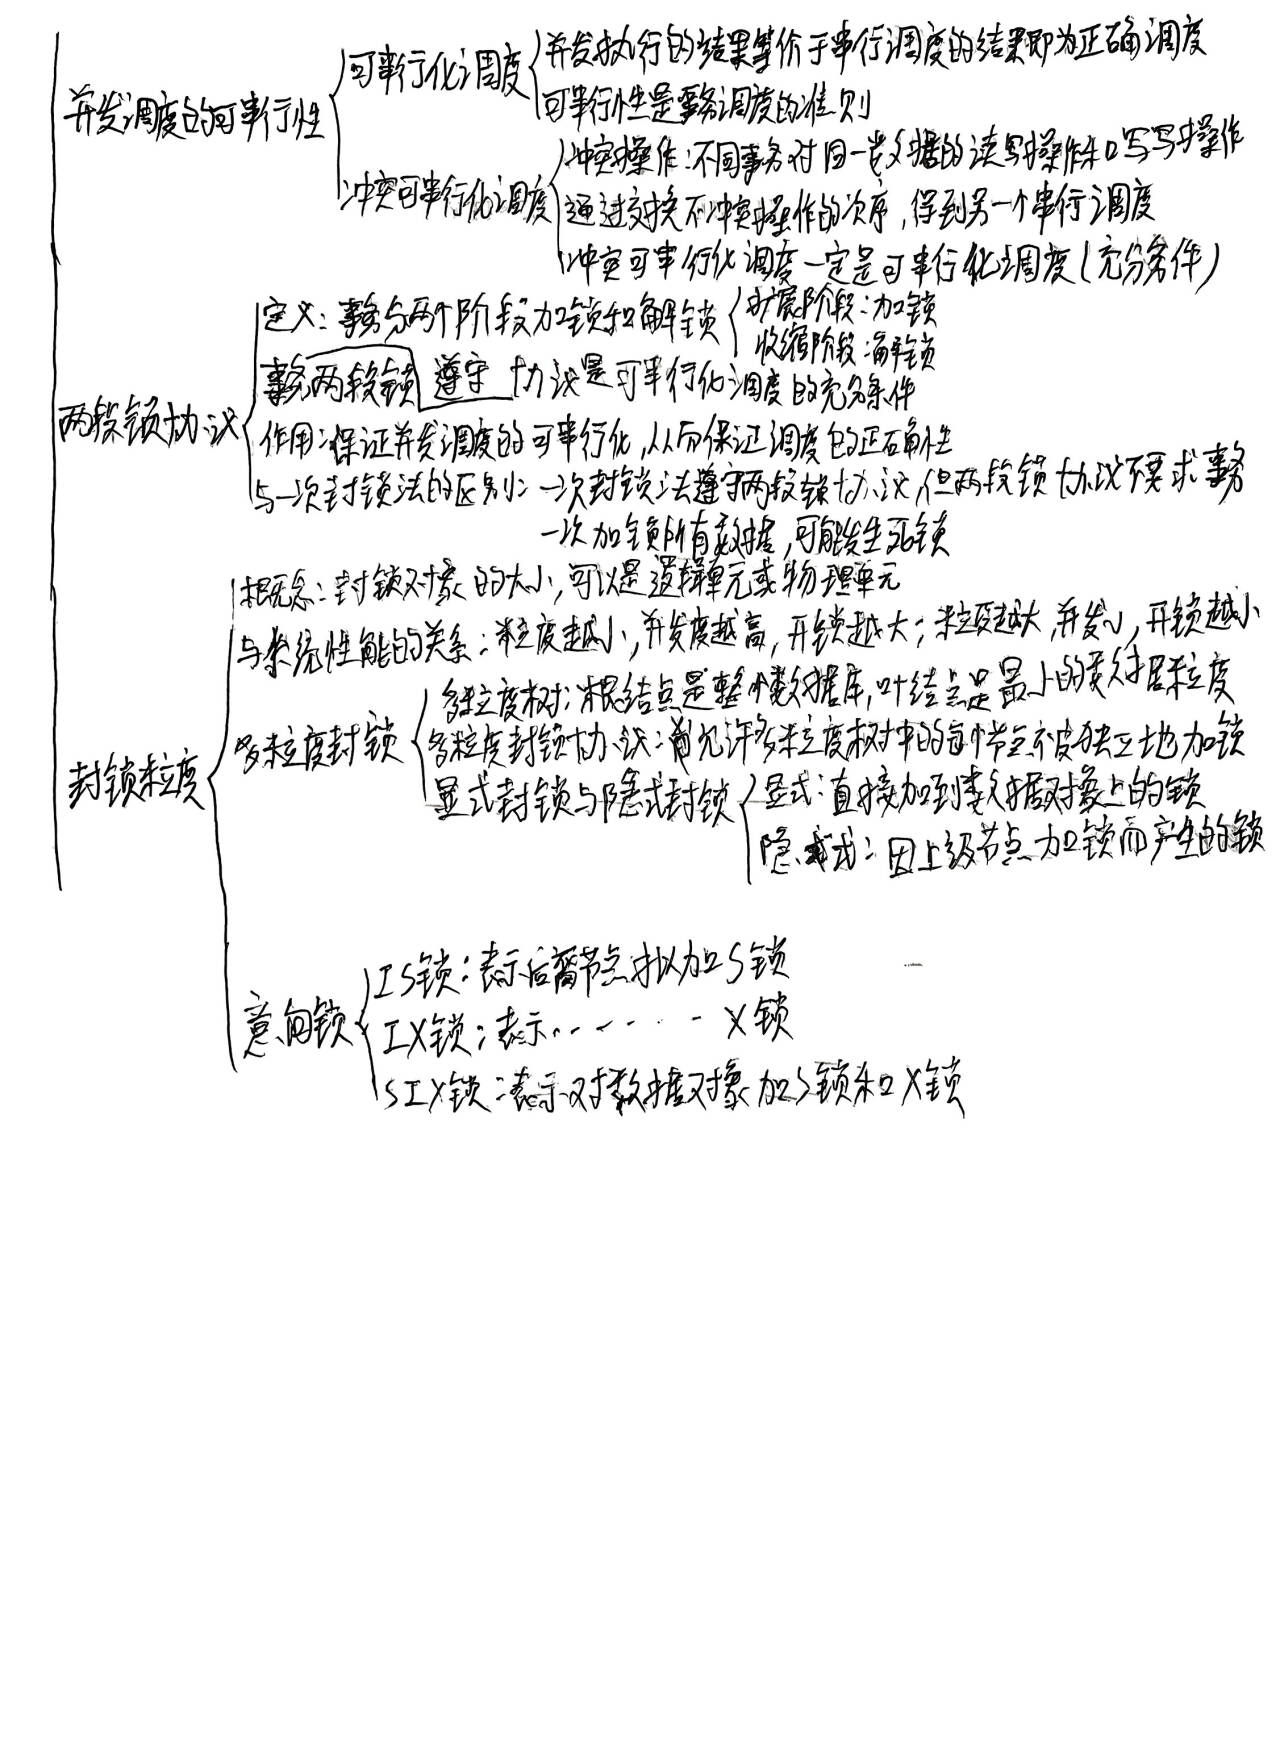 并发调度的可串行性
可串行化调度
并发执行的结果等价于串行调度的结果即为正确调度
可串行性是事务调度的准则
冲突可串行化调度
冲突操作:不同事务对同一数据的读写操作和写写操作
通过交换不冲突操作的次序,得到另一个串行调度
冲突可串行化调度一定是可串行化调度(充分条件)
两段锁协议
定义:事务分两个阶段加锁和解锁
扩展阶段:加锁
收缩阶段:解锁
事务两段锁遵守 协议是可串行化调度的充分条件
作用:保证并发调度的可串行化,从而保证调度的正确性
与一次封锁法的区别:一次封锁法遵守两段锁协议,但两段锁协议不要求事务
一次加锁所有数据,可能发生死锁
封锁粒度
概念:封锁对象的大小,可以是逻辑单元或物理单元
与系统性能的关系:粒度越小,并发度越高,开锁越大;粒度越大,并发小,开锁越小
多粒度封锁
多粒度树:根结点是整个数据库,叶结点是最小的数据粒度
多粒度封锁协议:允许多粒度树中的每个节点被独立地加锁
显式封锁与隐式封锁
显式:直接加到数据对象上的锁
隐式:因上级节点加锁而产生的锁
意向锁
IS锁:表示后裔节点拟加S锁
IX锁:表示------X锁
SIX锁:表示对数据对象加S锁和X锁